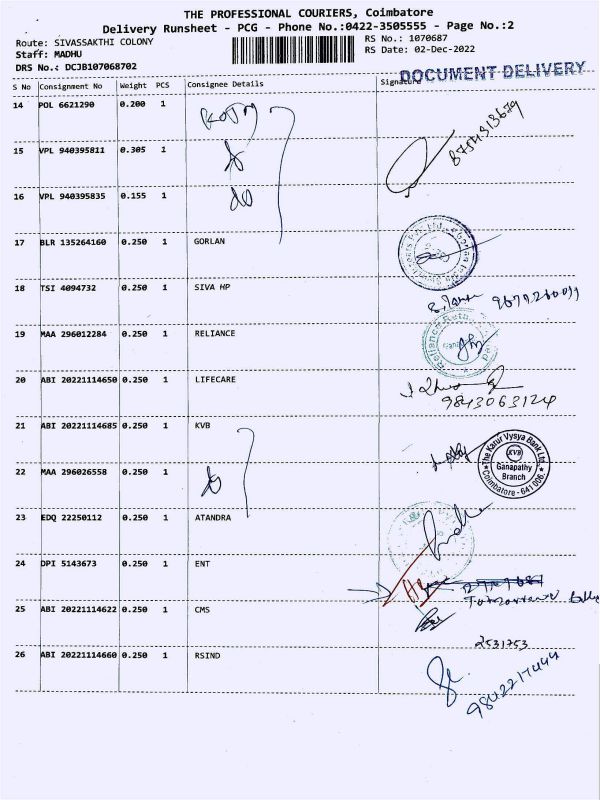 THE PROFESSIONAL COURIERS, Coimbatore
Delivery Runsheet - PCG - Phone No.:0422-3505555 - Page No.:2
Route: SIVASSAKTHI COLONY
Staff: MADHU
DRS No.: DCJB107068702
RS No.: 1070687
RS Date: 02-Dec-2022
S No Consignment No Weight PCS Consignee Details Signature
DOCUMENT DELIVERY
14 POL 6621290 0.200 1
15 VPL 940395811 0.305 1
8754313679
16 VPL 940395835 0.155 1
do
17 BLR 135264160 0.250 1 GORLAN
18 TSI 4094732 0.250 1 SIVA HP
19 MAA 296012284 0.250 1 RELIANCE
Reliance
20 ABI 20221114650 0.250 1 LIFECARE
9843063124
21 ABI 20221114685 0.250 1 KVB
The Karur Vysya Bank Ltd
KVB
Ganapathy
Branch
Coimbatore - 641 006.
22 MAA 296026558 0.250 1
23 EDQ 22250112 0.250 1 ATANDRA
24 DPI 5143673 0.250 1 ENT
25 ABI 20221114622 0.250 1 CMS
2531753
26 ABI 20221114660 0.250 1 RSIND
9842217444